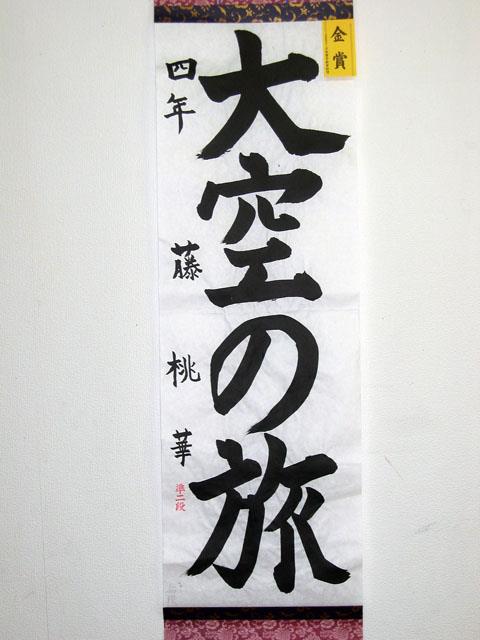 金賞
大空の旅
四年 藤 桃華
準二段